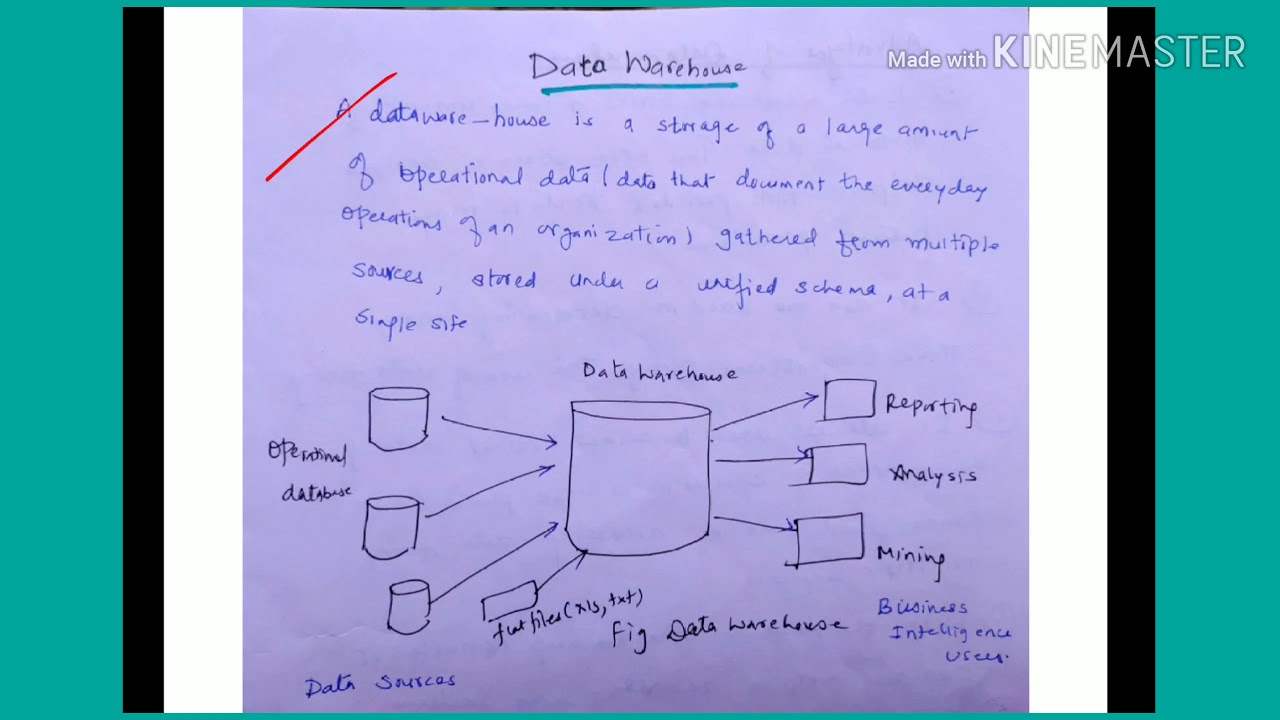 Made with KINEMASTER
Data Warehouse
A dataware-house is a storage of a large amount
of operational data (data that document the everyday
operations of an organization) gathered from multiple
sources, stored under a unified schema, at a
single site
Data Warehouse
Operational
database
Reporting
Analysis
Mining
flat files (xls, txt)
Fig Data Warehouse
Business
Intelligence
Users.
Data Sources